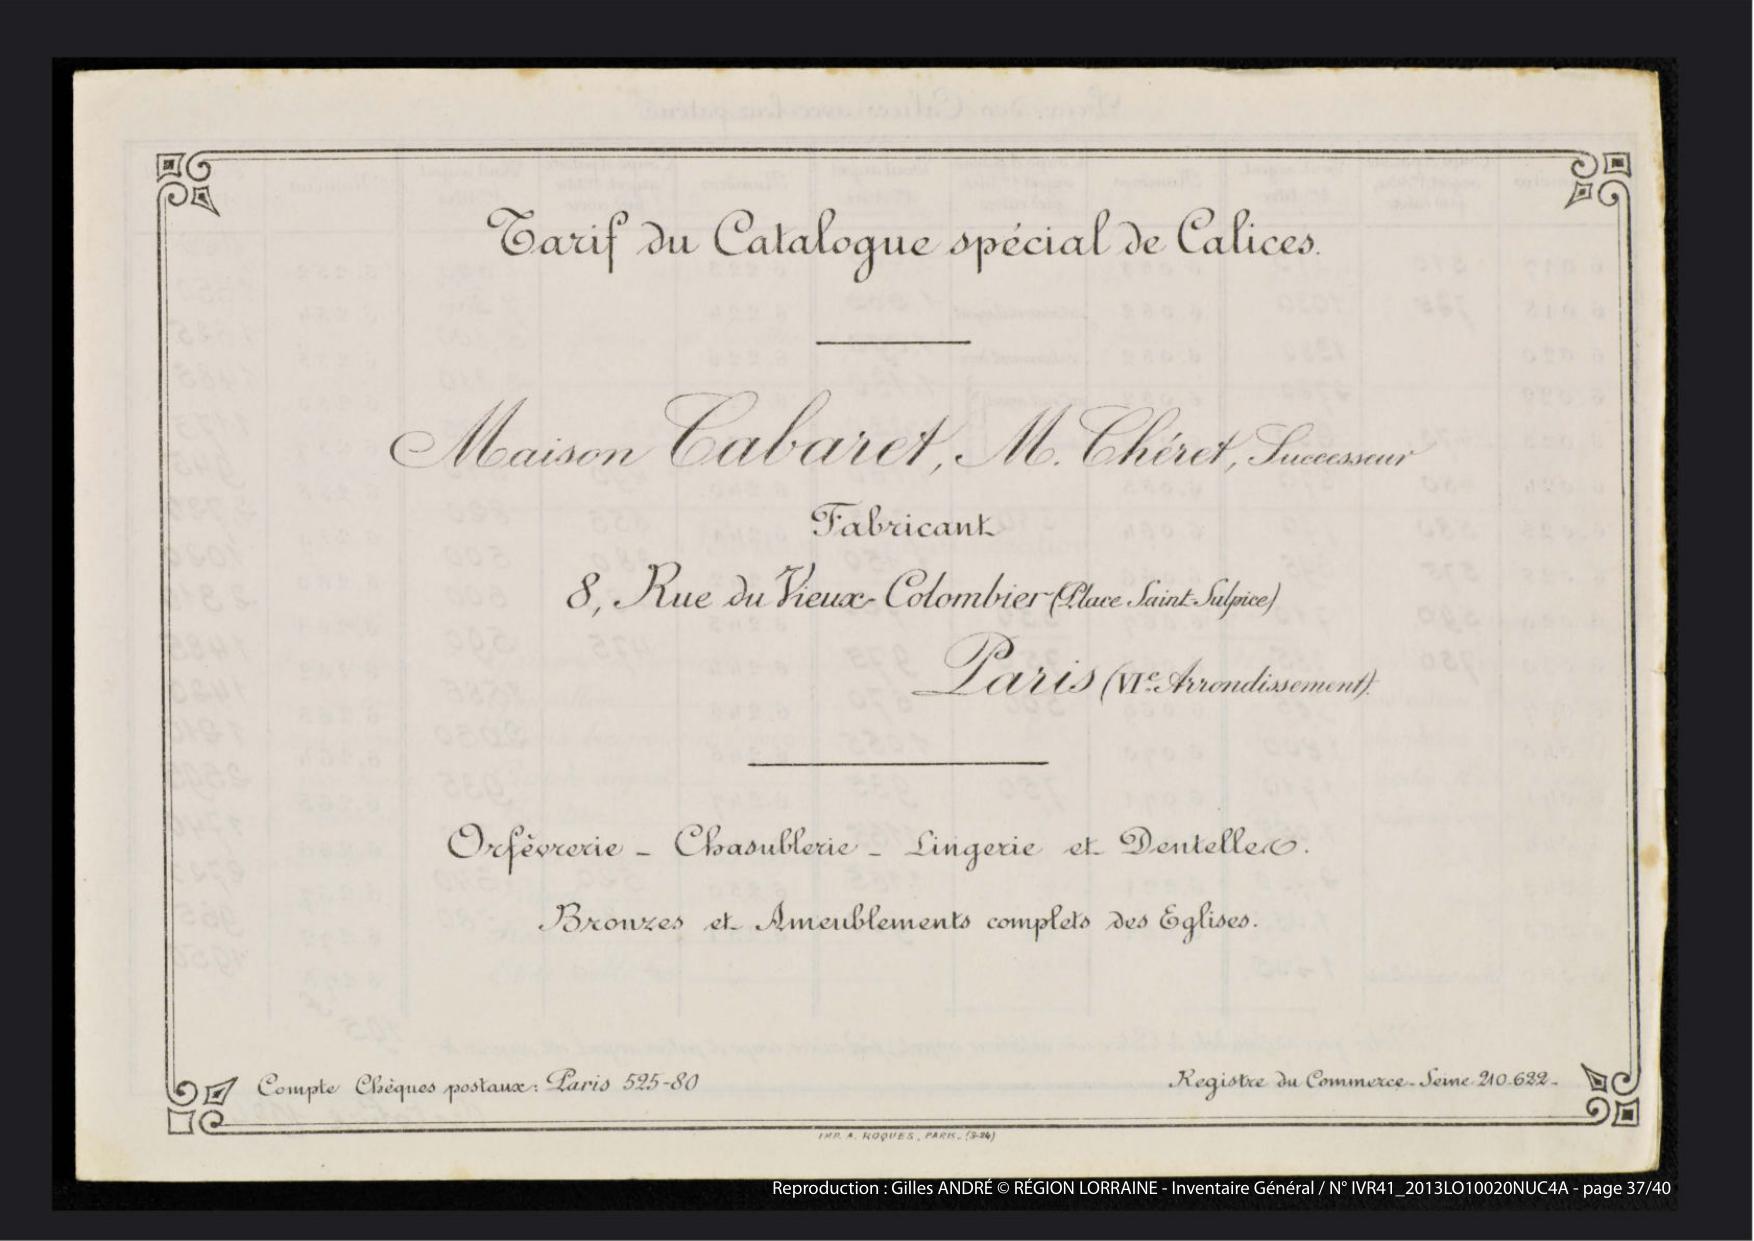 Tarif du Catalogue spécial de Calices.
Maison Cabaret, M. Chéret, Successeur
Fabricant
8, Rue du Vieux-Colombier (Place Saint-Sulpice)
Paris (VIe Arrondissement).
Orfèvrerie - Chasublerie - Lingerie et Dentelles.
Bronzes et Ameublements complets des Eglises.
Compte Chèques postaux: Paris 525-80
Registre du Commerce-Seine 210.622-
IMP. A. ROQUES, PARIS. (3-24)
Reproduction : Gilles ANDRÉ © RÉGION LORRAINE - Inventaire Général / N° IVR41_2013LO10020NUC4A - page 37/40